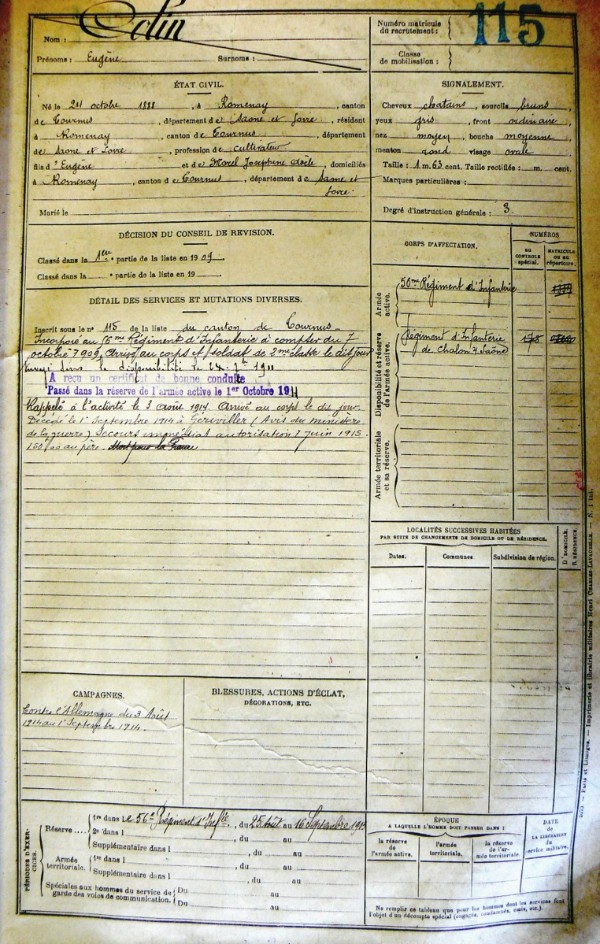 Nom : Colin
Prénoms : Eugène Surnoms :
Numéro matricule
du recrutement : 115
Classe
de mobilisation :
ÉTAT CIVIL.
Né le 24 octobre 1888, à Romenay, canton
de Tournus, département de Saone et Loire, résidant
à Romenay, canton de Tournus, département
de Saone et Loire, profession de cultivateur
fils d'Eugène et de Morel Joséphine Adèle, domiciliés
à Romenay, canton de Tournus, département de Saone et
Loire.
Marié le
SIGNALEMENT.
Cheveux chatains, sourcils bruns,
yeux gris, front ordinaire,
nez moyen, bouche moyenne,
menton rond, visage ovale.
Taille : 1 m. 63 cent. Taille rectifiée : m. cent.
Marques particulières :
Degré d'instruction générale : 3
DÉCISION DU CONSEIL DE REVISION.
Classé dans la 1ere partie de la liste en 1909.
Classé dans la e partie de la liste en 19
DÉTAIL DES SERVICES ET MUTATIONS DIVERSES.
Inscrit sous le n° 115 de la liste du canton de Tournus
Incorporé au Régiment d'Infanterie à compter du 7
octobre 1909, arrivé au corps et soldat de 2me classe le dit jour
Envoyé dans la disponibilité le 24 1911
A reçu un certificat de bonne conduite
Passé dans la réserve de l'armée active le 1er Octobre 1911
Rappelé à l'activité le 3 août 1914 Arrivé au corps le dit jour
Décédé le 1er Septembre 1914 à Gerbeviller (Avis du ministère
de la guerre) Secours immédiat autorisation 7 juin 1915
150 au père. Mort pour la France
CORPS D'AFFECTATION.
NUMÉROS
AU CONTROLE SPÉCIAL.
MATRICULE OU AU RÉPERTOIRE.
Armée active.
Régiment d'Infanterie
Disponibilité et réserve de l'armée active.
Régiment d'Infanterie
de Chalon s/ Saône
Armée territoriale et sa réserve.
LOCALITÉS SUCCESSIVES HABITÉES
PAR SUITE DE CHANGEMENTS DE DOMICILE OU DE RÉSIDENCE.
Dates. Communes Subdivision de région. D. DOMICILE. R. RÉSIDENCE.
CAMPAGNES.
Contre l'Allemagne du 3 Août
1914 au 1er Septembre 1914.
BLESSURES, ACTIONS D'ÉCLAT,
DÉCORATIONS, ETC.
PÉRIODES D'EXERCICES.
Réserve 1re dans le 56e Régiment d'Infie, du 25 Août au 16 Septembre 19
2e dans l , du au
Supplémentaire dans l , du au
Armée territoriale. 1re dans l , du au
Supplémentaire dans l , du au
Spéciales aux hommes du service de Du au
garde des voies de communication. Du au
ÉPOQUE
A LAQUELLE L'HOMME DOIT PASSER DANS :
la réserve de l'armée active.
l'armée territoriale.
la réserve de l'armée territoriale.
DATE de LA LIBÉRATION du service militaire.
Ne remplir ce tableau que pour les hommes dont les services font
l'objet d'un décompte spécial (engagés, condamnés, omis, etc.).
Paris et Limoges. — Imprimerie et librairie militaires Henri CHARLES-LAVAUZELLE.